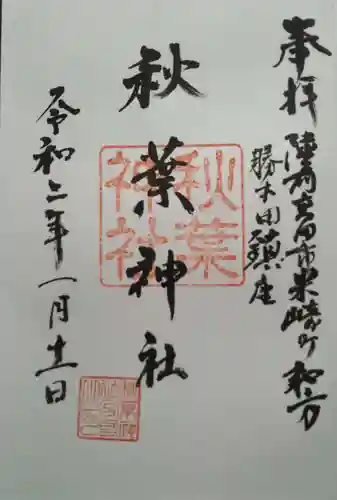 奉拝
陸前高田市米崎町和方
勝木田鎮座
秋葉神社
秋葉神社
令和二年一月十一日